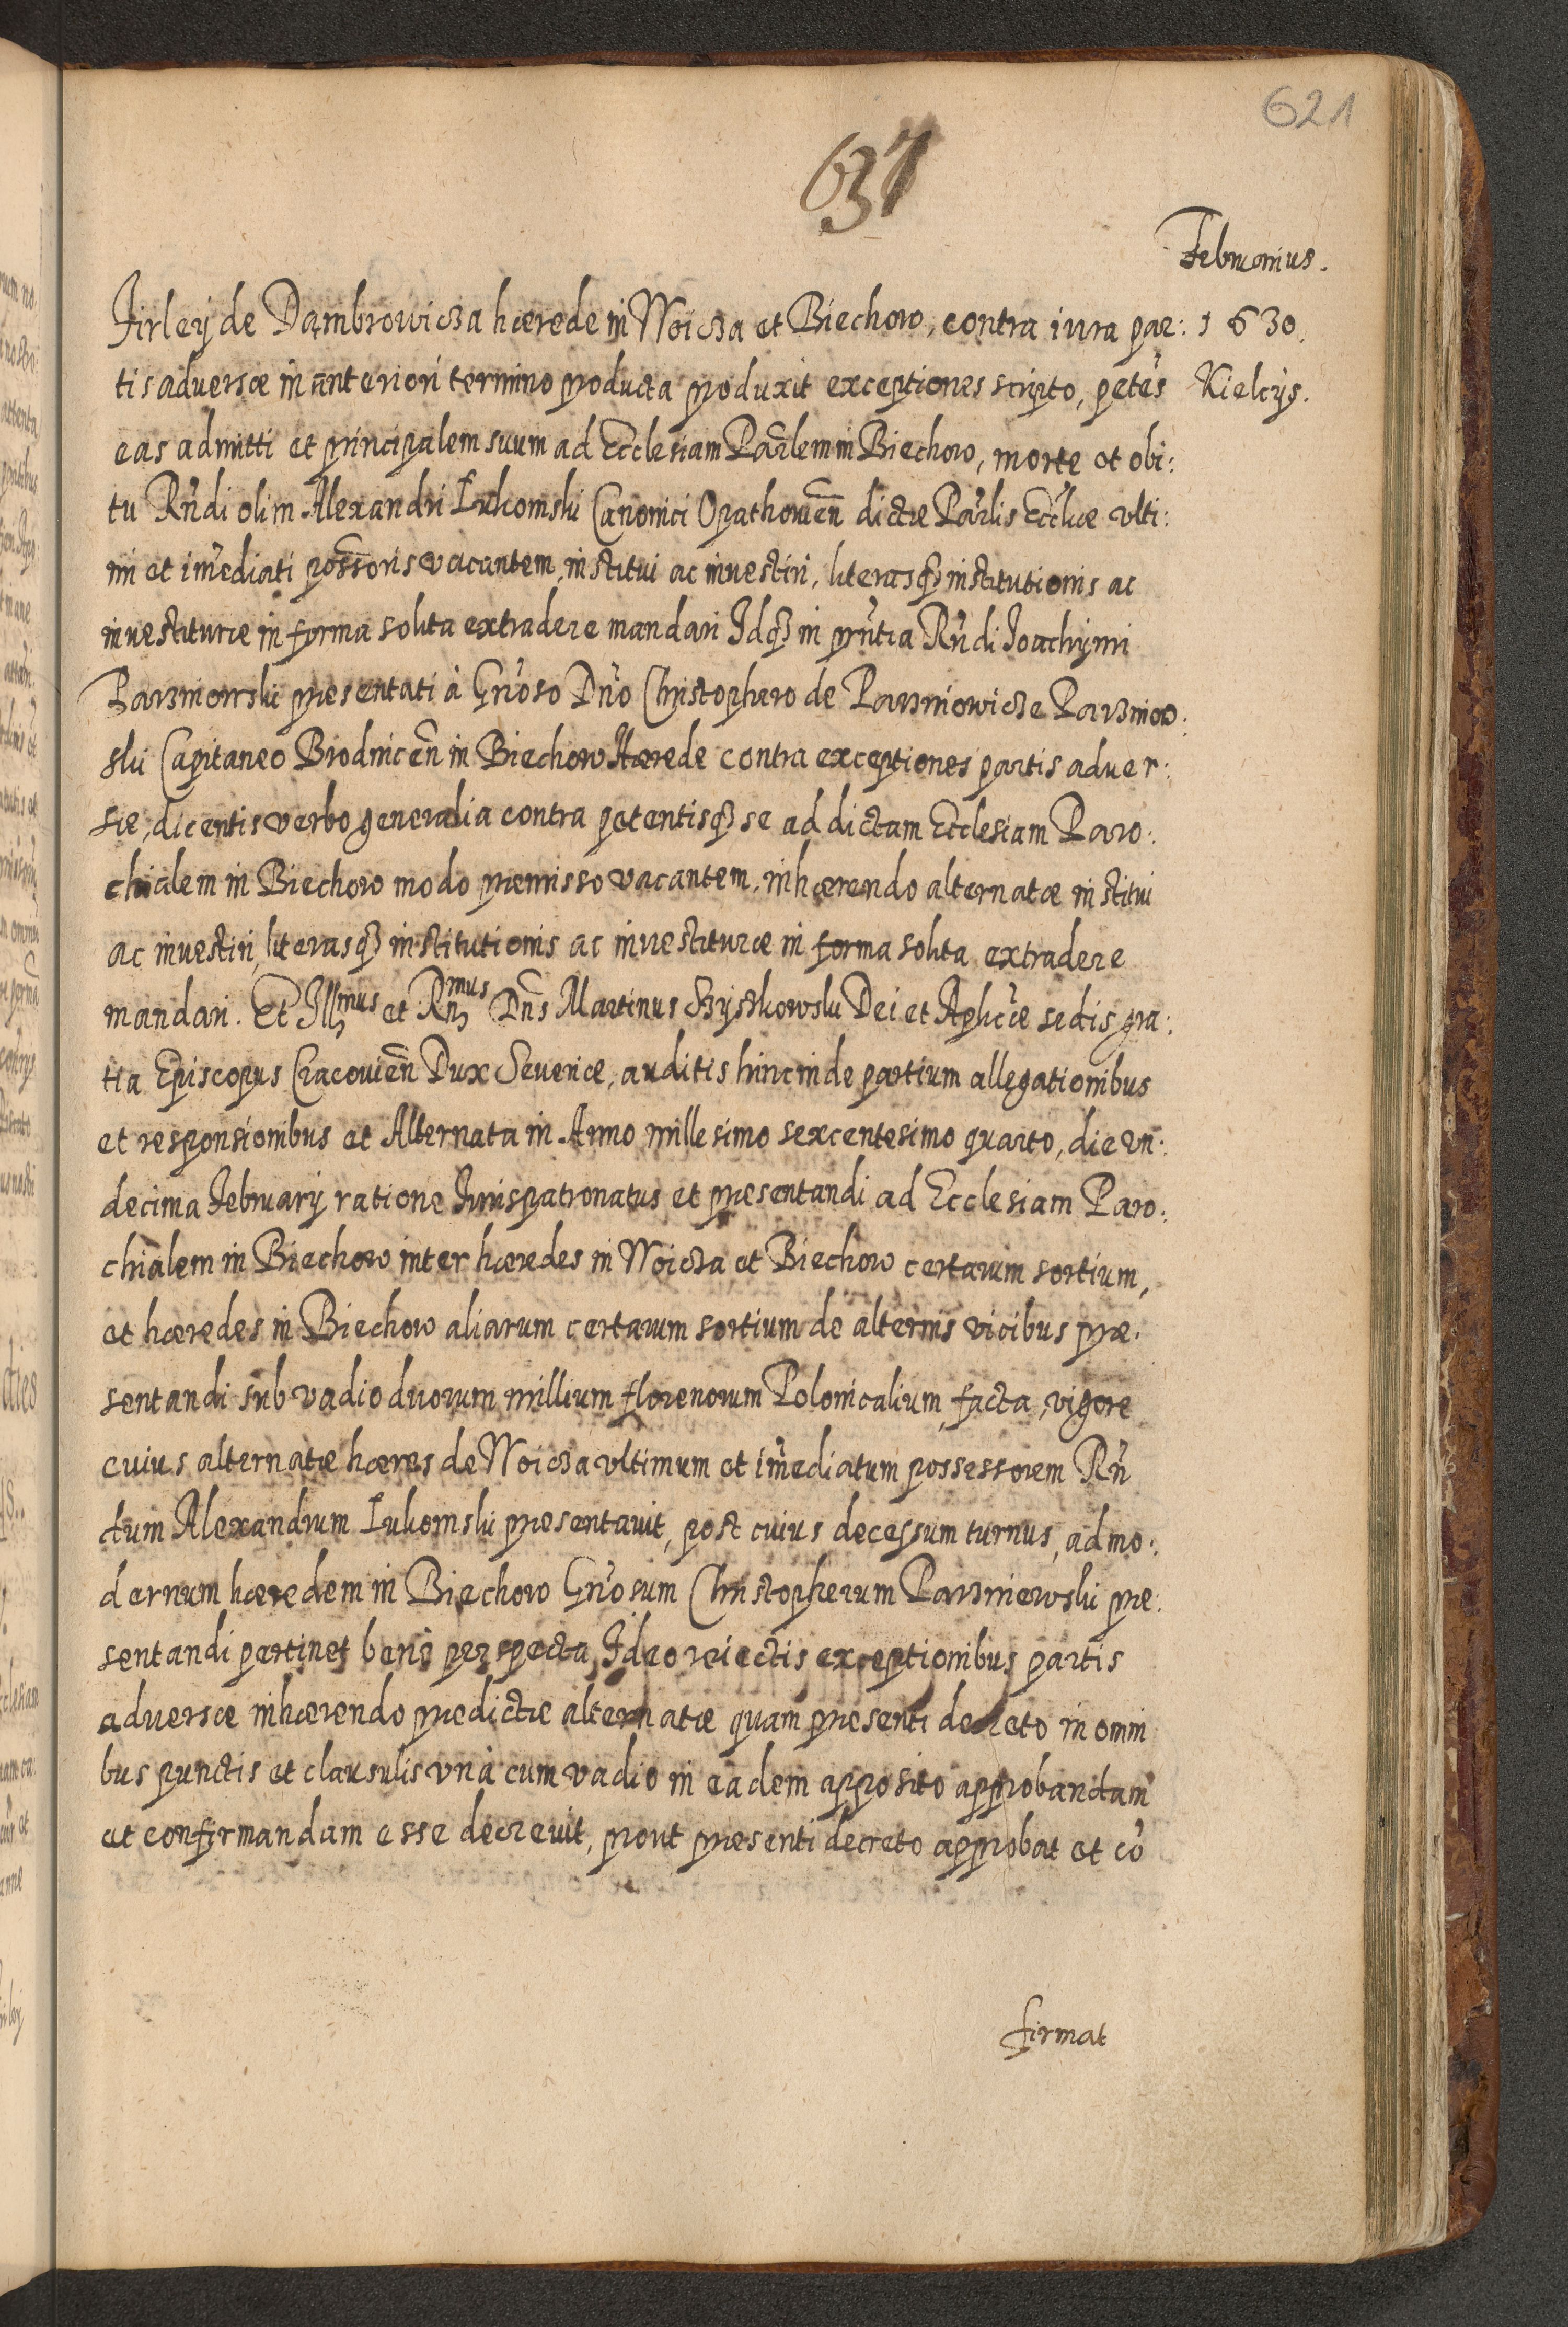 621
637
Februarius.
Firley de Dąmbrowicza hærede in Woicza et Biechow, contra iura par: 1630.
tis aduersæ in anteriori termino producta produxit exceptiones scripto, petēs Kielcÿs.
eas admitti et principalem suum ad Ecclesiam Parlem in Biechow, morte et obi:
tu Rndi olim Alexandri Lukomski Canonici Opathouien dictæ Parlis Eccliæ vlti:
mi et imediati possoris vacantem, institui ac inuestiri, literasq3 institutionis ac
inuestituræ in forma solita extradere mandari Idq3 in pntia Rndi Joachimi
Parzniewski præsentati à Gnoso Dno Christophero de Parzniowicze Parzniow:
ski Capitaneo Brodnicen in Biechow Hærede contra exceptiones partis aduer:
sæ, dicentis verbo generalia contra petentisq3 se ad dictam Ecclesiam Paro:
chialem in Biechow modo præmisso vacantem, inhærendo alternatæ institui
ac inuestiri, literasq3 institutionis ac inuestituræ in forma solita extradere
mandari. Et Illmus et Rnmus Dns Martinus Szyszkowski Dei et Aplicæ sedis gra:
tia Episcopus Cracouien Dux Seueriæ, auditis hincinde partium allegationibus
et responsionibus et Alternata in Anno millesimo sexcentesimo quarto, die vn:
decima February ratione Jurispatronatus et præsentandi ad Ecclesiam Paro:
chialem in Biechow inter hæredes in Woicza et Biechow certarum sortium,
et hæredes in Biechow aliarum certarum sortium de alternis vicibus præ:
sentandi sub vadio duorum millium florenorum Polonicalium, facta, vigore
cuius alternatæ hæres de Woicza vltimum et imediatum possessorem Rn
dum Alexandrum Lukomski præsentauit, post cuius decessum turnus, ad mo:
dernum hæredem in Biechow Gnosum Christopherum Parzniewski præ:
sentandi pertinet benè perspecta, Ideo reiectis exceptionibus partis
aduersæ inhærendo prædictæ alternatæ quam præsenti decreto in omni
bus punctis et clausulis vnà cum vadio in eadem apposito approbandam
et confirmandam esse decreuit, prout præsenti decreto approbat et cō
firmat